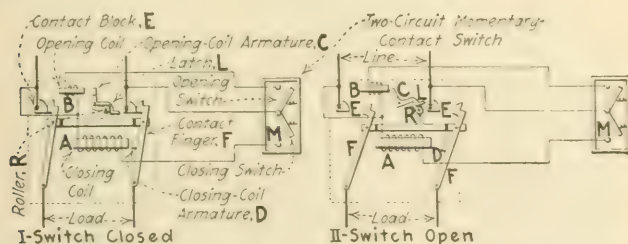 Contact Block, E
Opening Coil
Opening-Coil Armature, C
Latch, L
Opening Switch
B
M
Contact Finger, F
A
Roller, R
Closing Coil
Closing Switch
Closing-Coil Armature, D
Load
I-Switch Closed
Two-Circuit Momentary-Contact Switch
Line
B
C
L
E
R
E
M
F
A
D
F
Load
II-Switch Open